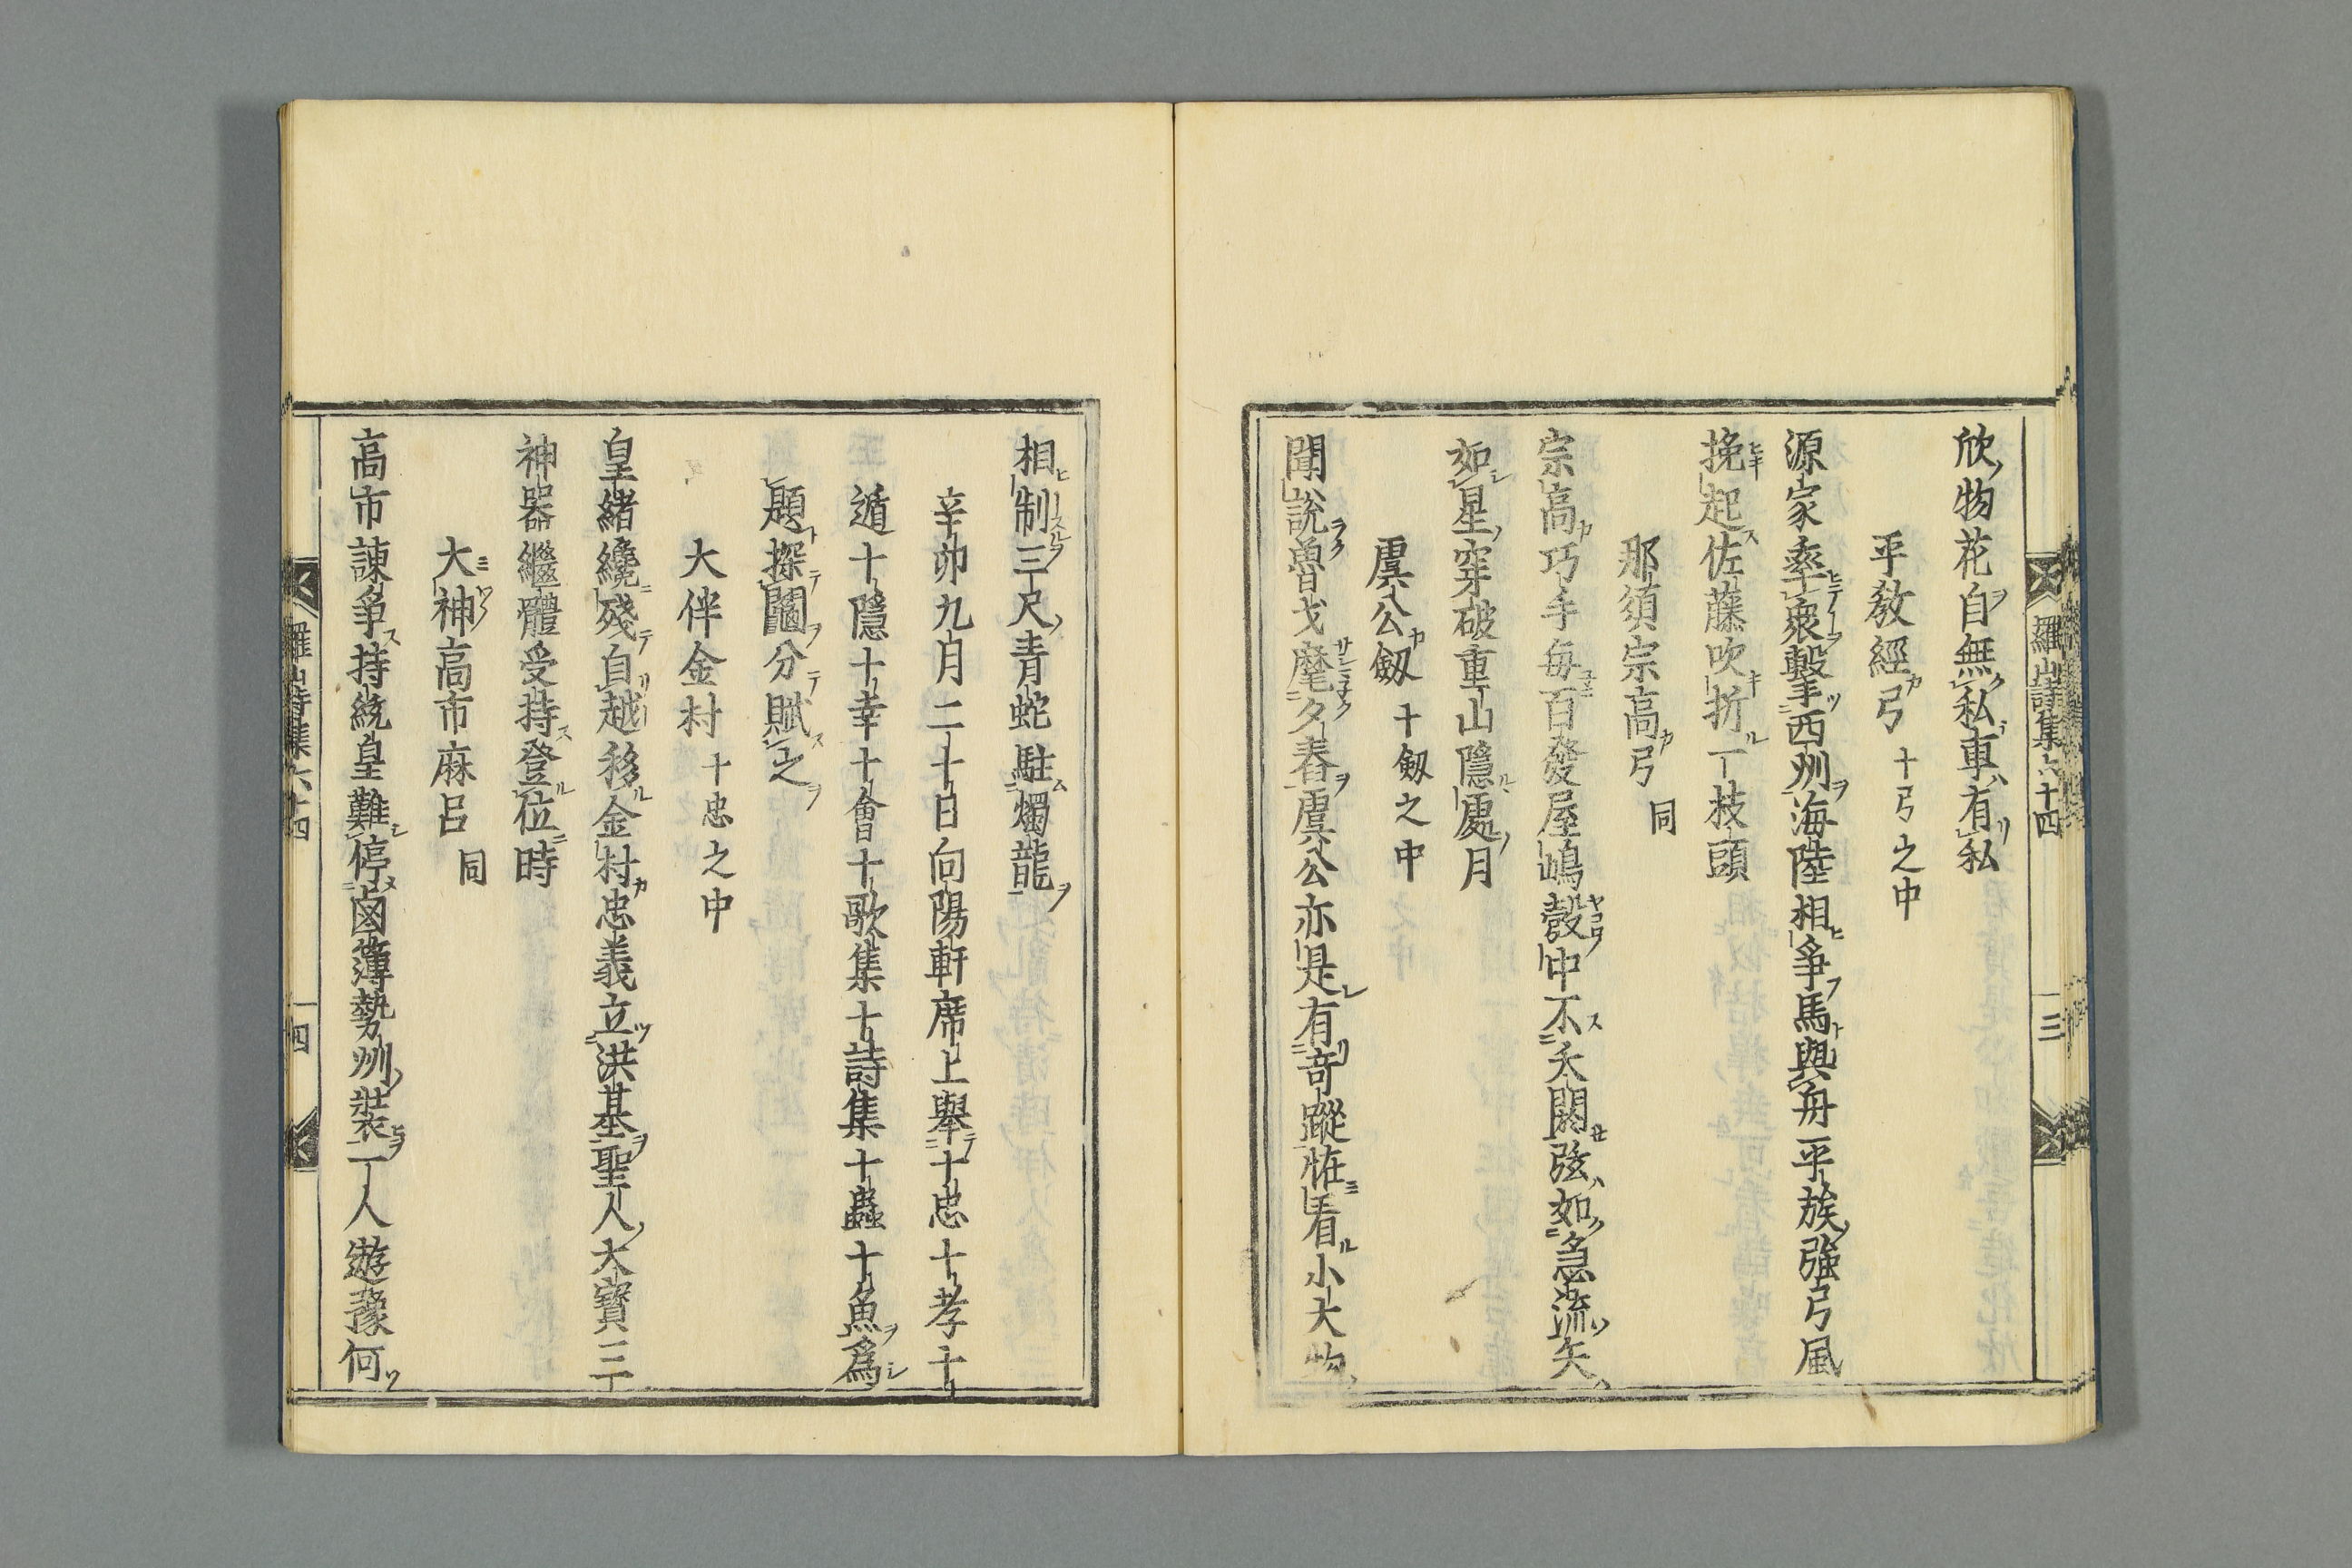 羅山詩集六十四
三
欣物花自無私車有私
平教經弓 十弓之中
源家率衆擊西州海陸相爭馬與舟平族強弓風
挽起佐藤吹折一枝頭
那須宗高弓 同
宗高巧手每百發屋嶋彀中不夭閼弦如急流矢
如星穿破重山隱處月
虞公劔 十劔之中
聞說魯戈麾夕舂虞公亦是有奇蹤恠看小大物
相制三尺青蛇駐燭龍
辛卯九月二十日向陽軒席上舉十忠十孝十
遁十隱十幸十會十歌集十詩集十蟲十魚爲
題探鬮分賦之
大伴金村 十忠之中
皇緒纔殘自越移金村忠義立洪基聖人大寶三
神器繼體受持登位時
大神高市麻呂 同
高市諫爭持統皇難停鹵簿勢州裝一人遊豫何
羅山詩集六十四
四